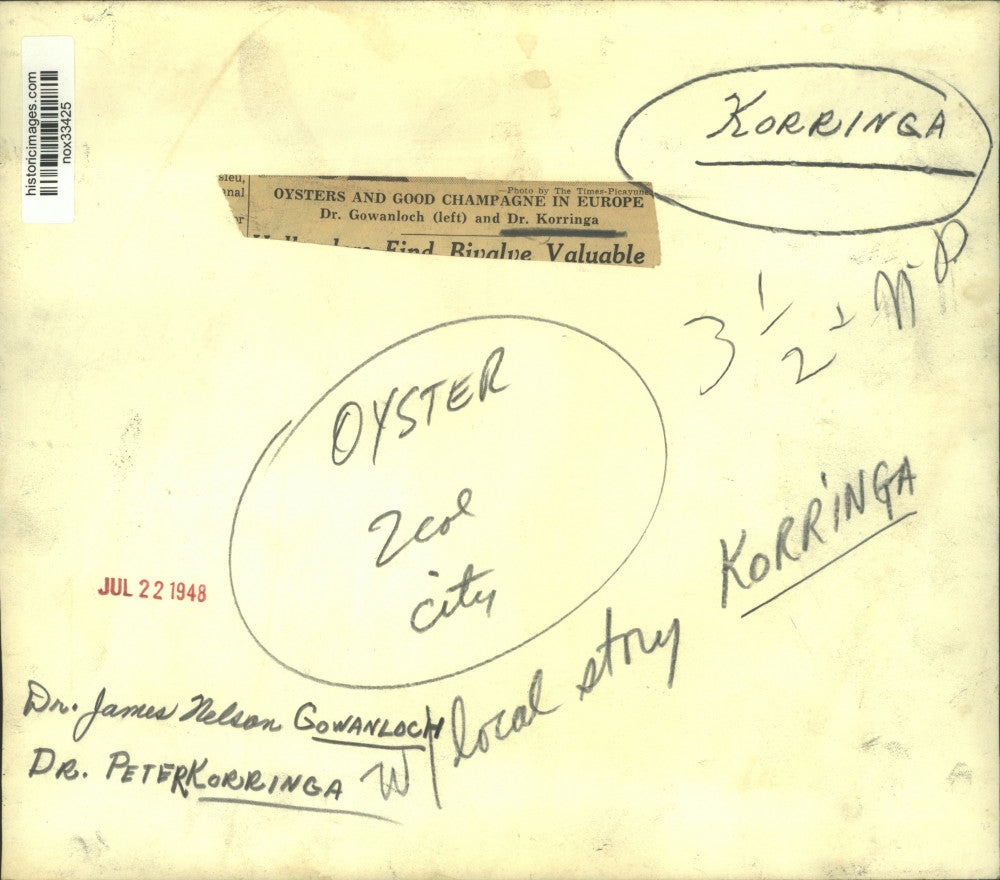 historicimages.com
nox33425
KORRINGA
sieu,
onal
or
—Photo by The Times-Picayune
OYSTERS AND GOOD CHAMPAGNE IN EUROPE
Dr. Gowanloch (left) and Dr. Korringa
Find Bivalve Valuable
3 1/2
OYSTER
2 col
city
KORRINGA
JUL 22 1948
w/ local story
Dr. James Nelson GOWANLOCH
DR. PETER KORRINGA